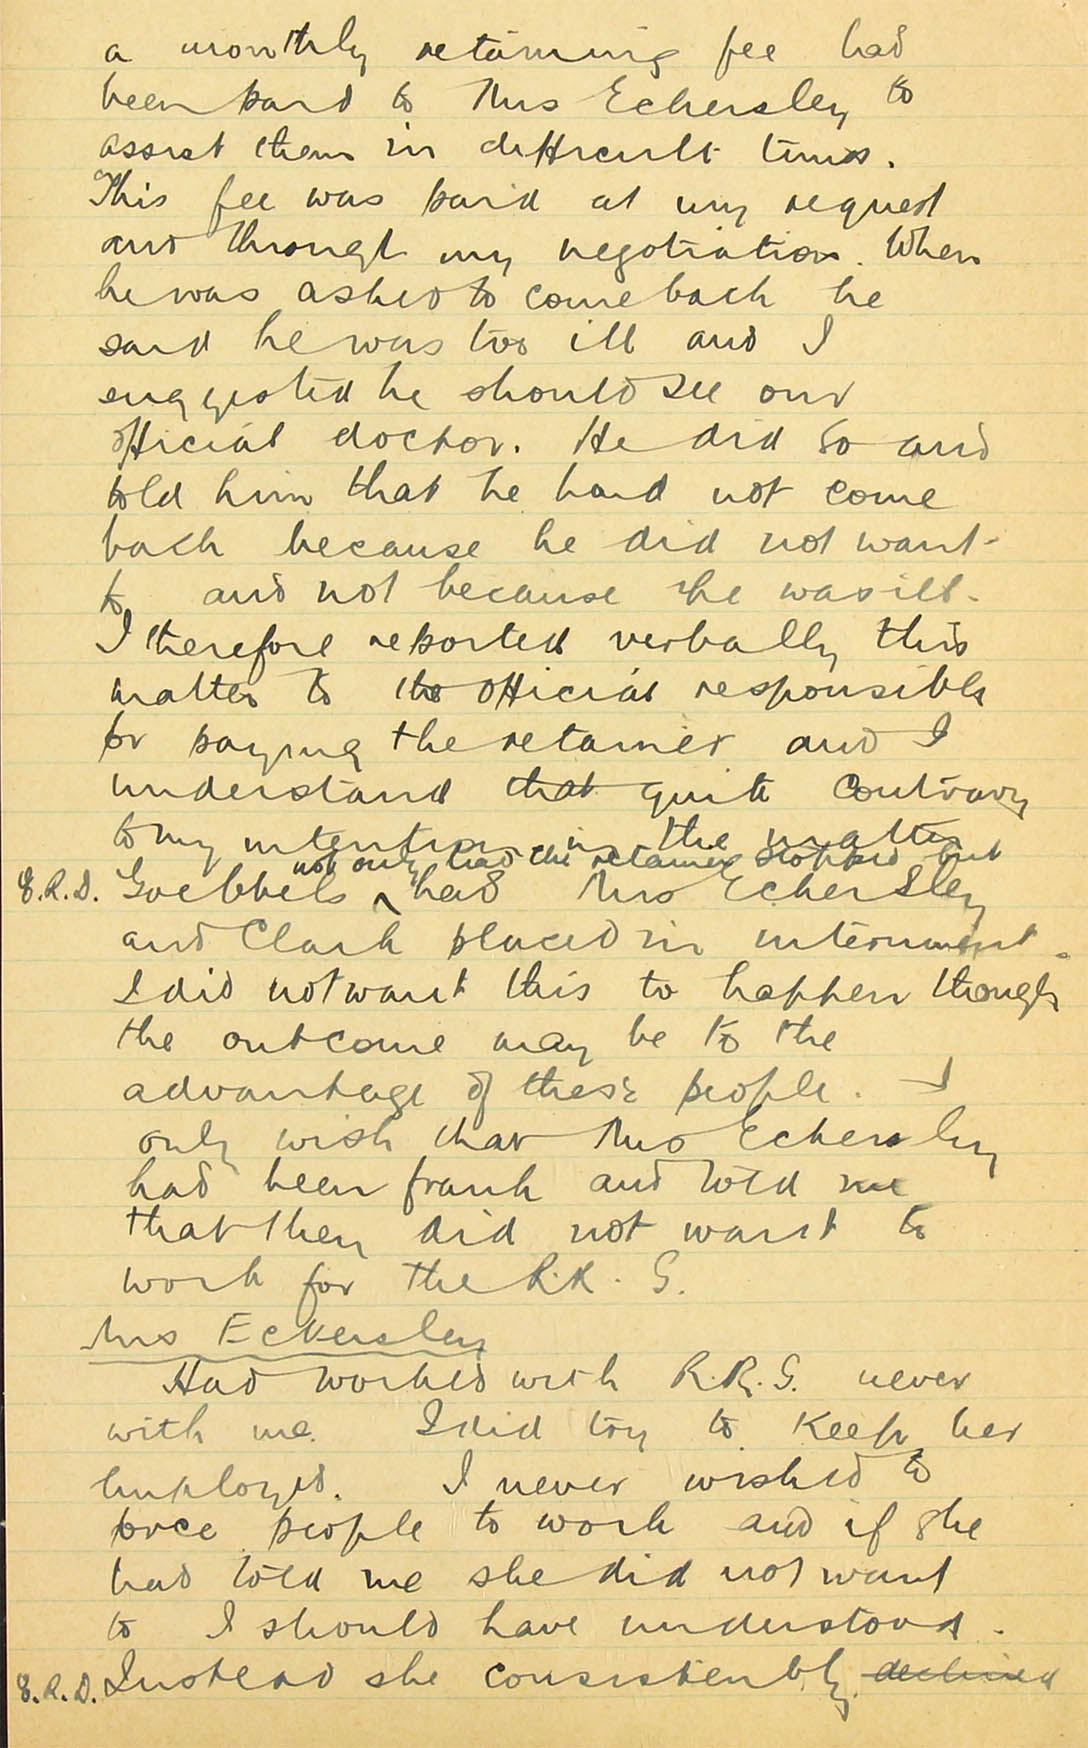 a monthly retaining fee had
been paid to Mrs Eckersley to
assist them in difficult times.
This fee was paid at my request
and through my negotiation. When
he was asked to come back he
said he was too ill and I
suggested he should see our
official doctor. He did so and
told him that he had not come
back because he did not want
to and not because he was ill.
I therefore reported verbally this
matter to the official responsible
for paying the retainer and I
understand that quite contrary
to my intention in the matter
not only had the retainer stopped but
E.R.D. Goebbels ^ had Mrs Eckersley
and Clark placed in internment.
I did not want this to happen though
the outcome may be to the
advantage of these people. I
only wish that Mrs Eckersley
had been frank and told me
that they did not want to
work for the R.R.G.
Mrs Eckersley
Had worked with R.R.G. never
with me. I did try to keep her
employed. I never wished to
force people to work and if she
had told me she did not want
to I should have understood.
E.R.D. Instead she consistently declined